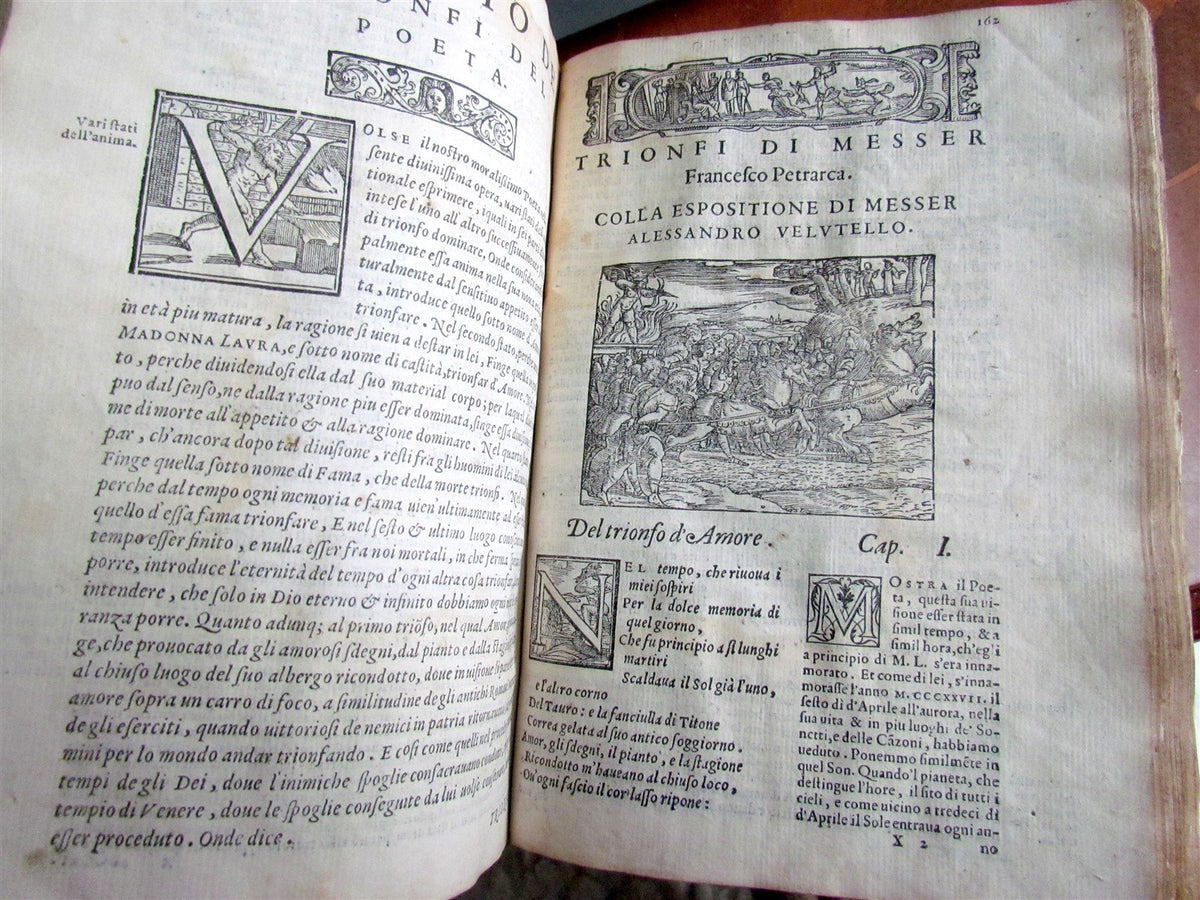 POETA.
Vari stati
dell'anima.
VOLSE il nostro moralissimo Poeta
sente diuinissima opera, uari stati
tionale esprimere, iquali in sei
intese l'uno all'altro successiuamente
di trionfo dominare. Onde
palmente essa anima nella sua
turalmente dal sensitiuo appetito
ta, introduce quello sotto nome d'
trionfare. Nel secondo stato,
in età piu matura, la ragione si uien a destar in lei, Finge quella
MADONNA LAVRA, e sotto nome di castità, trionfar d'Amore.
to, perche diuidendosi ella dal suo material corpo; per
puo dal senso, ne dalla ragione piu esser dominata, finge essa
me di morte all'appetito & alla ragione dominare. Nel quarto
par, ch'ancora dopo tal diuisione, resti fra gli huomini di lei
Finge quella sotto nome di Fama, che della morte trionfi.
perche dal tempo ogni memoria e fama uien'ultimamente ad
quello d'essa fama trionfare, E nel sesto & ultimo luogo
tempo esser finito, e nulla esser fra noi mortali, in che ferma
porre, introduce l'eternità del tempo d'ogni altra cosa trionfar,
intendere, che solo in Dio eterno & infinito dobbiamo ogni
ranza porre. Quanto adunq; al primo triõfo, nel qual Amor
ge, che prouocato da gli amorosi sdegni, dal pianto e dalla
al chiuso luogo del suo albergo ricondotto, doue in uisione
amore sopra un carro di foco, a similitudine de gli antichi
de gli eserciti, quando uittoriosi de nemici in patria
mini per lo mondo andar trionfando. E cosi come quelli nel
tempi de gli Dei, doue l'inimiche spoglie consacrauano
tempio di Venere, doue le spoglie conseguite da lui uolse
esser proceduto. Onde dice.
162
TRIONFI DI MESSER
Francesco Petrarca.
COLLA ESPOSITIONE DI MESSER
ALESSANDRO VELVTELLO.
Del trionfo d'Amore. Cap. I.
NEL tempo, che rinoua i
miei sospiri
Per la dolce memoria di
quel giorno,
Che fu principio a sì lunghi
martiri
Scaldaua il Sol già l'uno,
e l'altro corno
Del Tauro: e la fanciulla di Titone
Correa gelata al suo antico soggiorno.
Amor, gli sdegni, il pianto, e la stagione
Ricondotto m'haueano al chiuso loco,
Ou'ogni fascio il cor lasso ripone:
MOSTRA il Poe-
ta, questa sua ui-
sione esser stata in
simil tempo, & a
simil hora, ch'egli
a principio di M. L. s'era inna-
morato. Et come di lei, s'inna-
morasse l'anno M.CCCXXVII. il
sesto di d'Aprile all'aurora, nella
sua uita & in piu luoghi de' So-
netti, e delle Cãzoni, habbiamo
ueduto. Ponemmo similmẽte in
quel Son. Quando'l pianeta, che
destingue l'hore, il sito di tutti i
cieli, e come uicino a tredeci di
d'Aprile il Sole entraua ogni an-
X 2 no